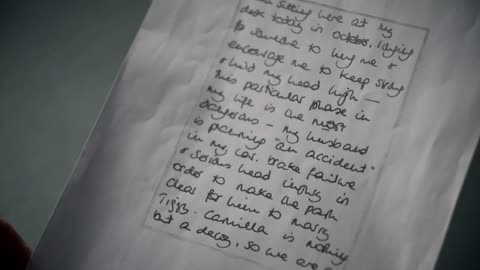 sitting here at my
desk today in october, longing
for someone to hug me &
encourage me to keep strong
& hold my head high -
This particular phase in
my life is the most
dangerous - my husband
is planning "an accident"
in my car. brake failure
& serious head injury in
order to make the path
clear for him to marry
Tiggy. Camilla is nothing
but a decoy, so we are